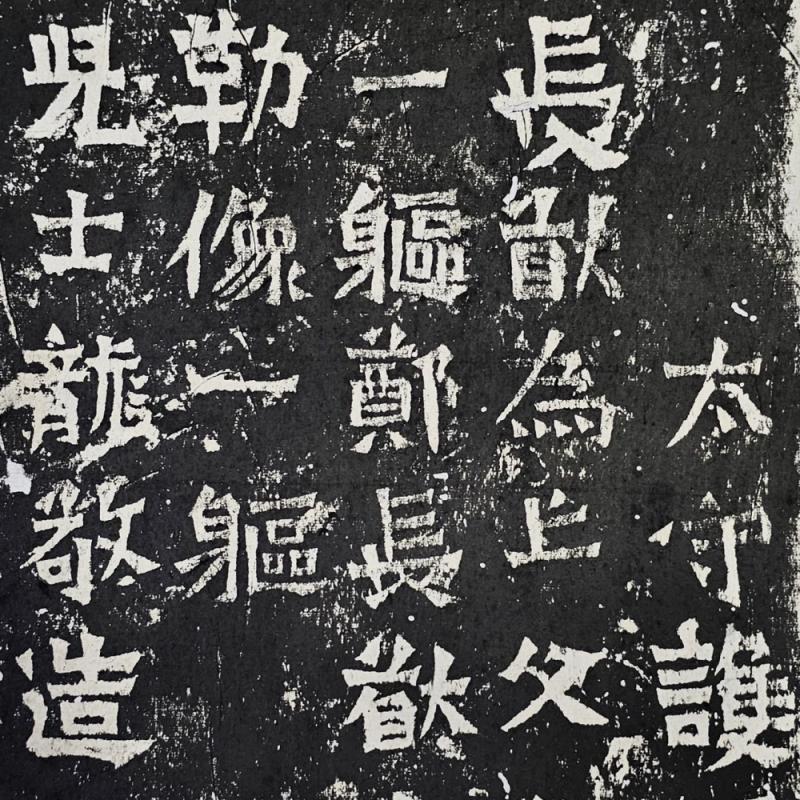 太守護
長猷為亡父
一軀鄭長猷
勒像一軀
兒士龍敬造